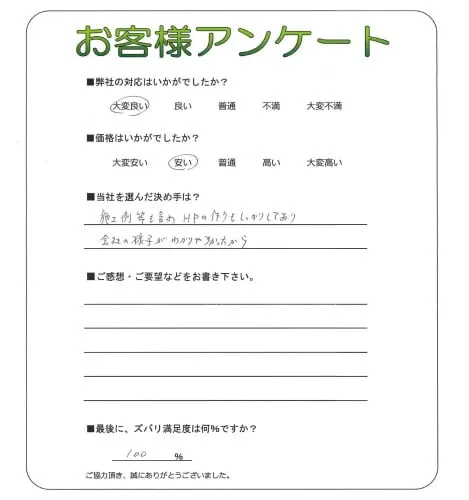 お客様アンケート
■弊社の対応はいかがでしたか？
大変良い 良い 普通 不満 大変不満
■価格はいかがでしたか？
大変安い 安い 普通 高い 大変高い
■当社を選んだ決め手は？
施工例等も含めHPの作りもしっかりしており
会社の様子がわかりやすかったから
■ご感想・ご要望などをお書き下さい。
■最後に、ズバリ満足度は何％ですか？
100 ％
ご協力頂き、誠にありがとうございました。